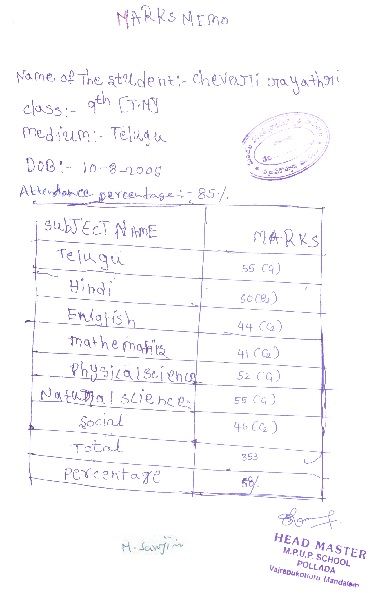 MARKS MEMO
Name of The student:- chevarri gayathri
class:- 9th [T.M]
medium:- Telugu
DOB:- 10-8-2006
Attendance percentage:- 85%
SubJECT NAME MARKS
Telugu 55 (G)
Hindi 60 (B2)
Englaish 44 (C2)
mathematics 41 (C2)
Physical science 52 (C1)
Natural science 55 (G)
Social 46 (C2)
Total 353
Percentage
HEAD MASTER
M.P.U.P. SCHOOL
POLLADA
Mandalam